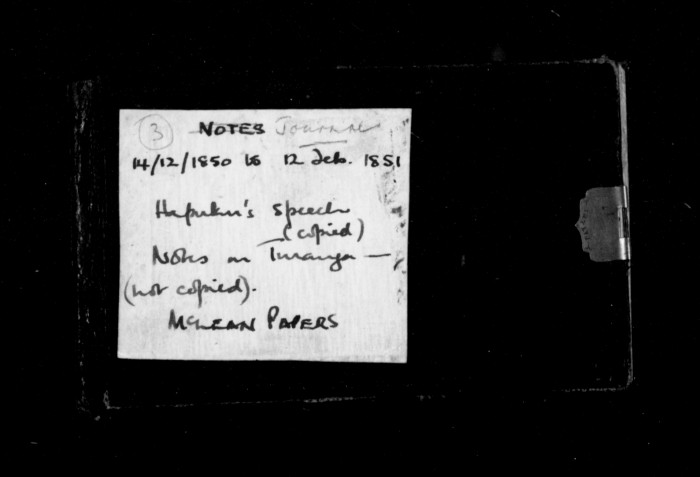 3 NOTES Journal
14/12/1850 to 12 Feb. 1851
Hapuku's speech
(copied)
Notes on Turanga —
(not copied).
McLEAN PAPERS